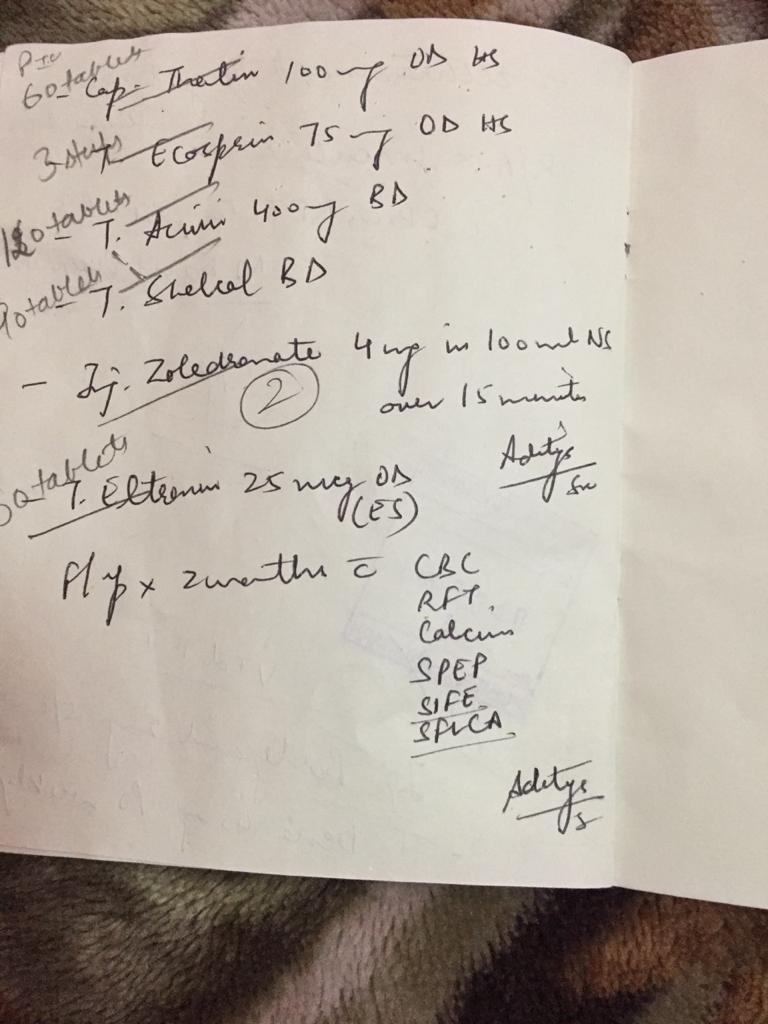 60 tablets
Cap. Thalin 100 mg OD HS
3 strips
T. Ecosprin 75 mg OD HS
120 tablets - T. Acivir 400 mg BD
90 tablets - T. Shelcal BD
- Inj. Zoledronate 4 mg in 100 ml NS
2 over 15 minutes
Aditya
tablets
T. Eltroxin 25 mcg OD
(ES)
F/up x 2 months c̄ CBC
RFT
Calcium
SPEP
SIFE
SFLCA
Aditya